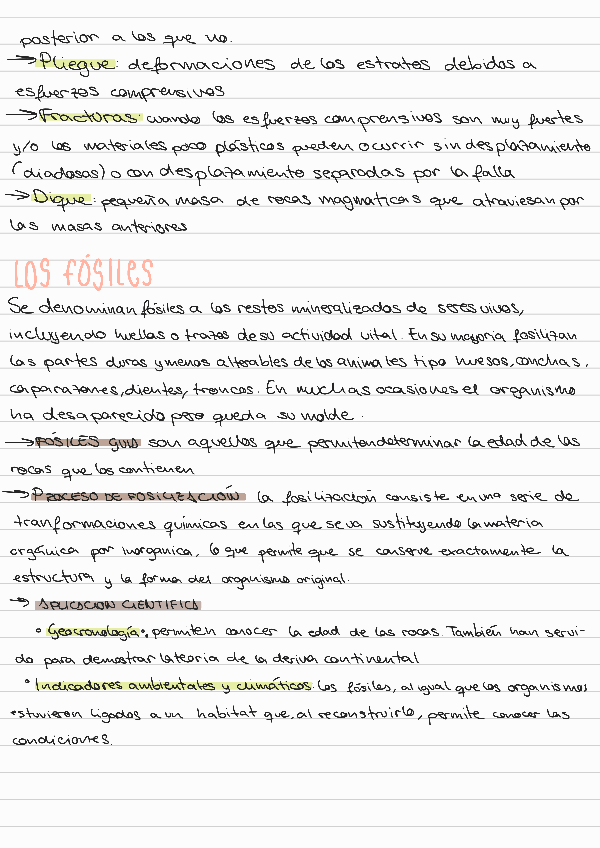 posterior a los que no.
→Pliegue: deformaciones de los estratos debidos a
esfuerzos comprensivos
→Fracturas: cuando los esfuerzos comprensivos son muy fuertes
y/o los materiales poco plásticos pueden ocurrir sin desplazamiento
(diaclasas) o con desplazamiento separadas por la falla
→Dique: pequeña masa de rocas magmáticas que atraviesan por
las masas anteriores
LOS FÓSILES
Se denominan fósiles a los restos mineralizados de seres vivos,
incluyendo huellas o trazos de su actividad vital. En su mayoría fosilizan
las partes duras y menos alterables de los animales tipo huesos, conchas,
caparazones, dientes, troncos. En muchas ocasiones el organismo
ha desaparecido pero queda su molde.
→FÓSILES GUÍA son aquellos que permiten determinar la edad de las
rocas que los contienen
→PROCESO DE FOSILIZACIÓN la fosilización consiste en una serie de
tranformaciones químicas en las que se va sustituyendo la materia
orgánica por inorgánica, lo que permite que se conserve exactamente la
estructura y la forma del organismo original.
→ APLICACION CIENTIFICA
• Geocronología: permiten conocer la edad de las rocas. También han servi-
do para demostrar la teoría de la deriva continental
• Indicadores ambientales y climáticos: los fósiles, al igual que los organismos
estuvieron ligados a un habitat que, al reconstruirlo, permite conocer las
condiciones.